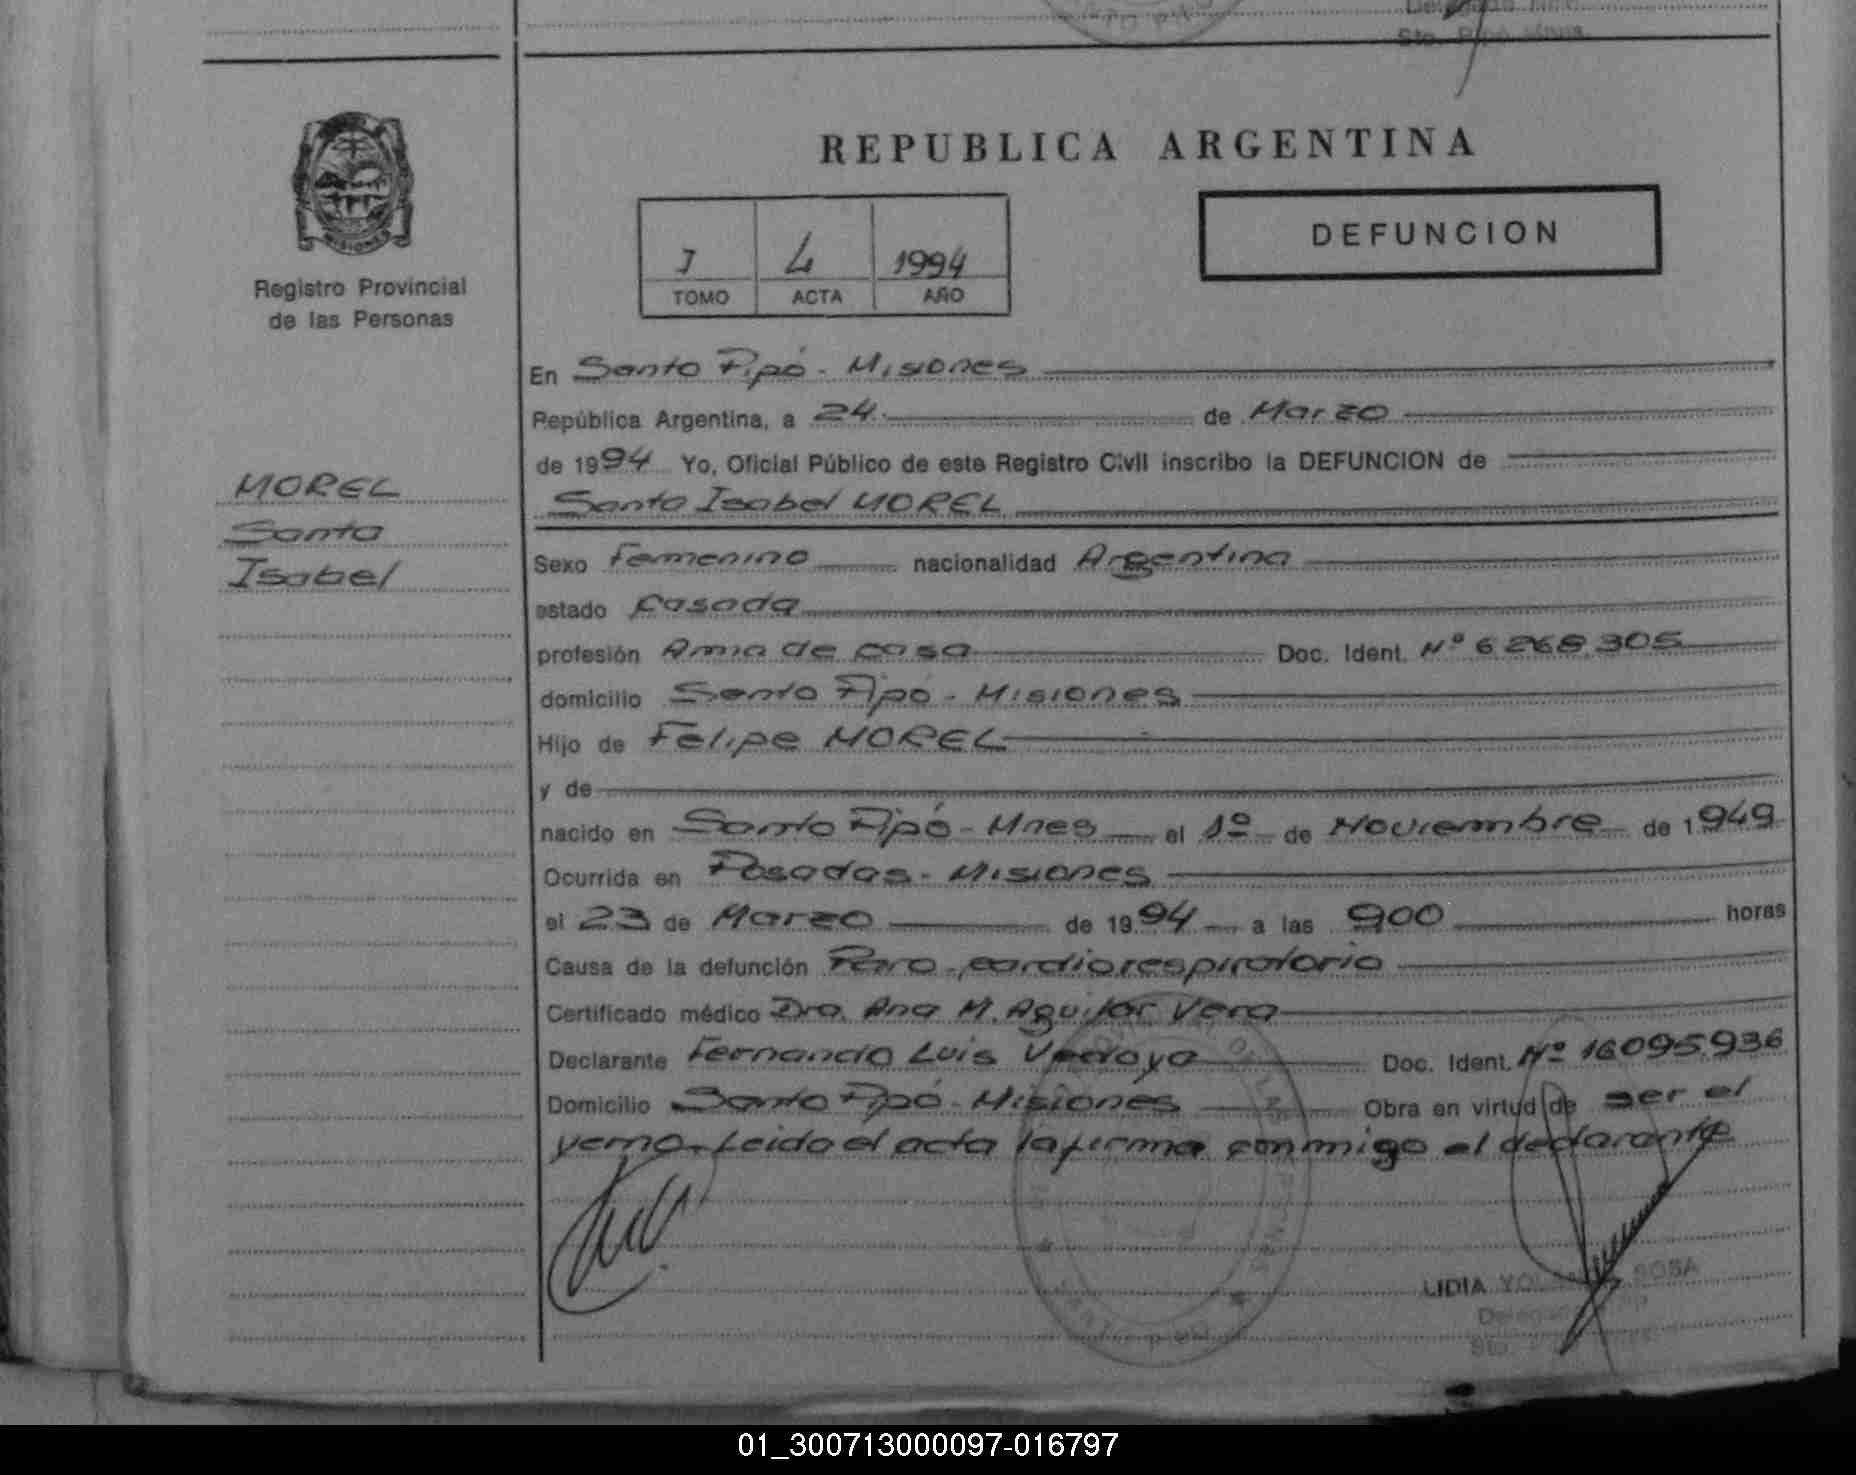 REPUBLICA ARGENTINA
DEFUNCION
MISIONES
Registro Provincial
de las Personas
I 4 1994
TOMO ACTA AÑO
MOREL
Santa
Isabel
En Santo Pipó - Misiones
República Argentina, a 24 de Marzo
de 1994 Yo, Oficial Público de este Registro Civil inscribo la DEFUNCION de
Santa Isabel MOREL
Sexo Femenino nacionalidad Argentina
estado Casada
profesión Ama de casa Doc. Ident. Nº 6268.305
domicilio Santo Pipó - Misiones
Hijo de Felipe MOREL
y de
nacido en Santo Pipó - Mnes el 1º de Noviembre de 1949
Ocurrida en Posadas - Misiones
el 23 de Marzo de 1994 a las 900 horas
Causa de la defunción Paro cardiorespiratorio
Certificado médico Dra. Ana M. Aguilar Vera
Declarante Fernando Luis Vedoya Doc. Ident. Nº 16095.936
Domicilio Santo Pipó - Misiones Obra en virtud de ser el
yerno. Leido el acta la firma conmigo el declarante
LIDIA
Sto.
01_300713000097-016797